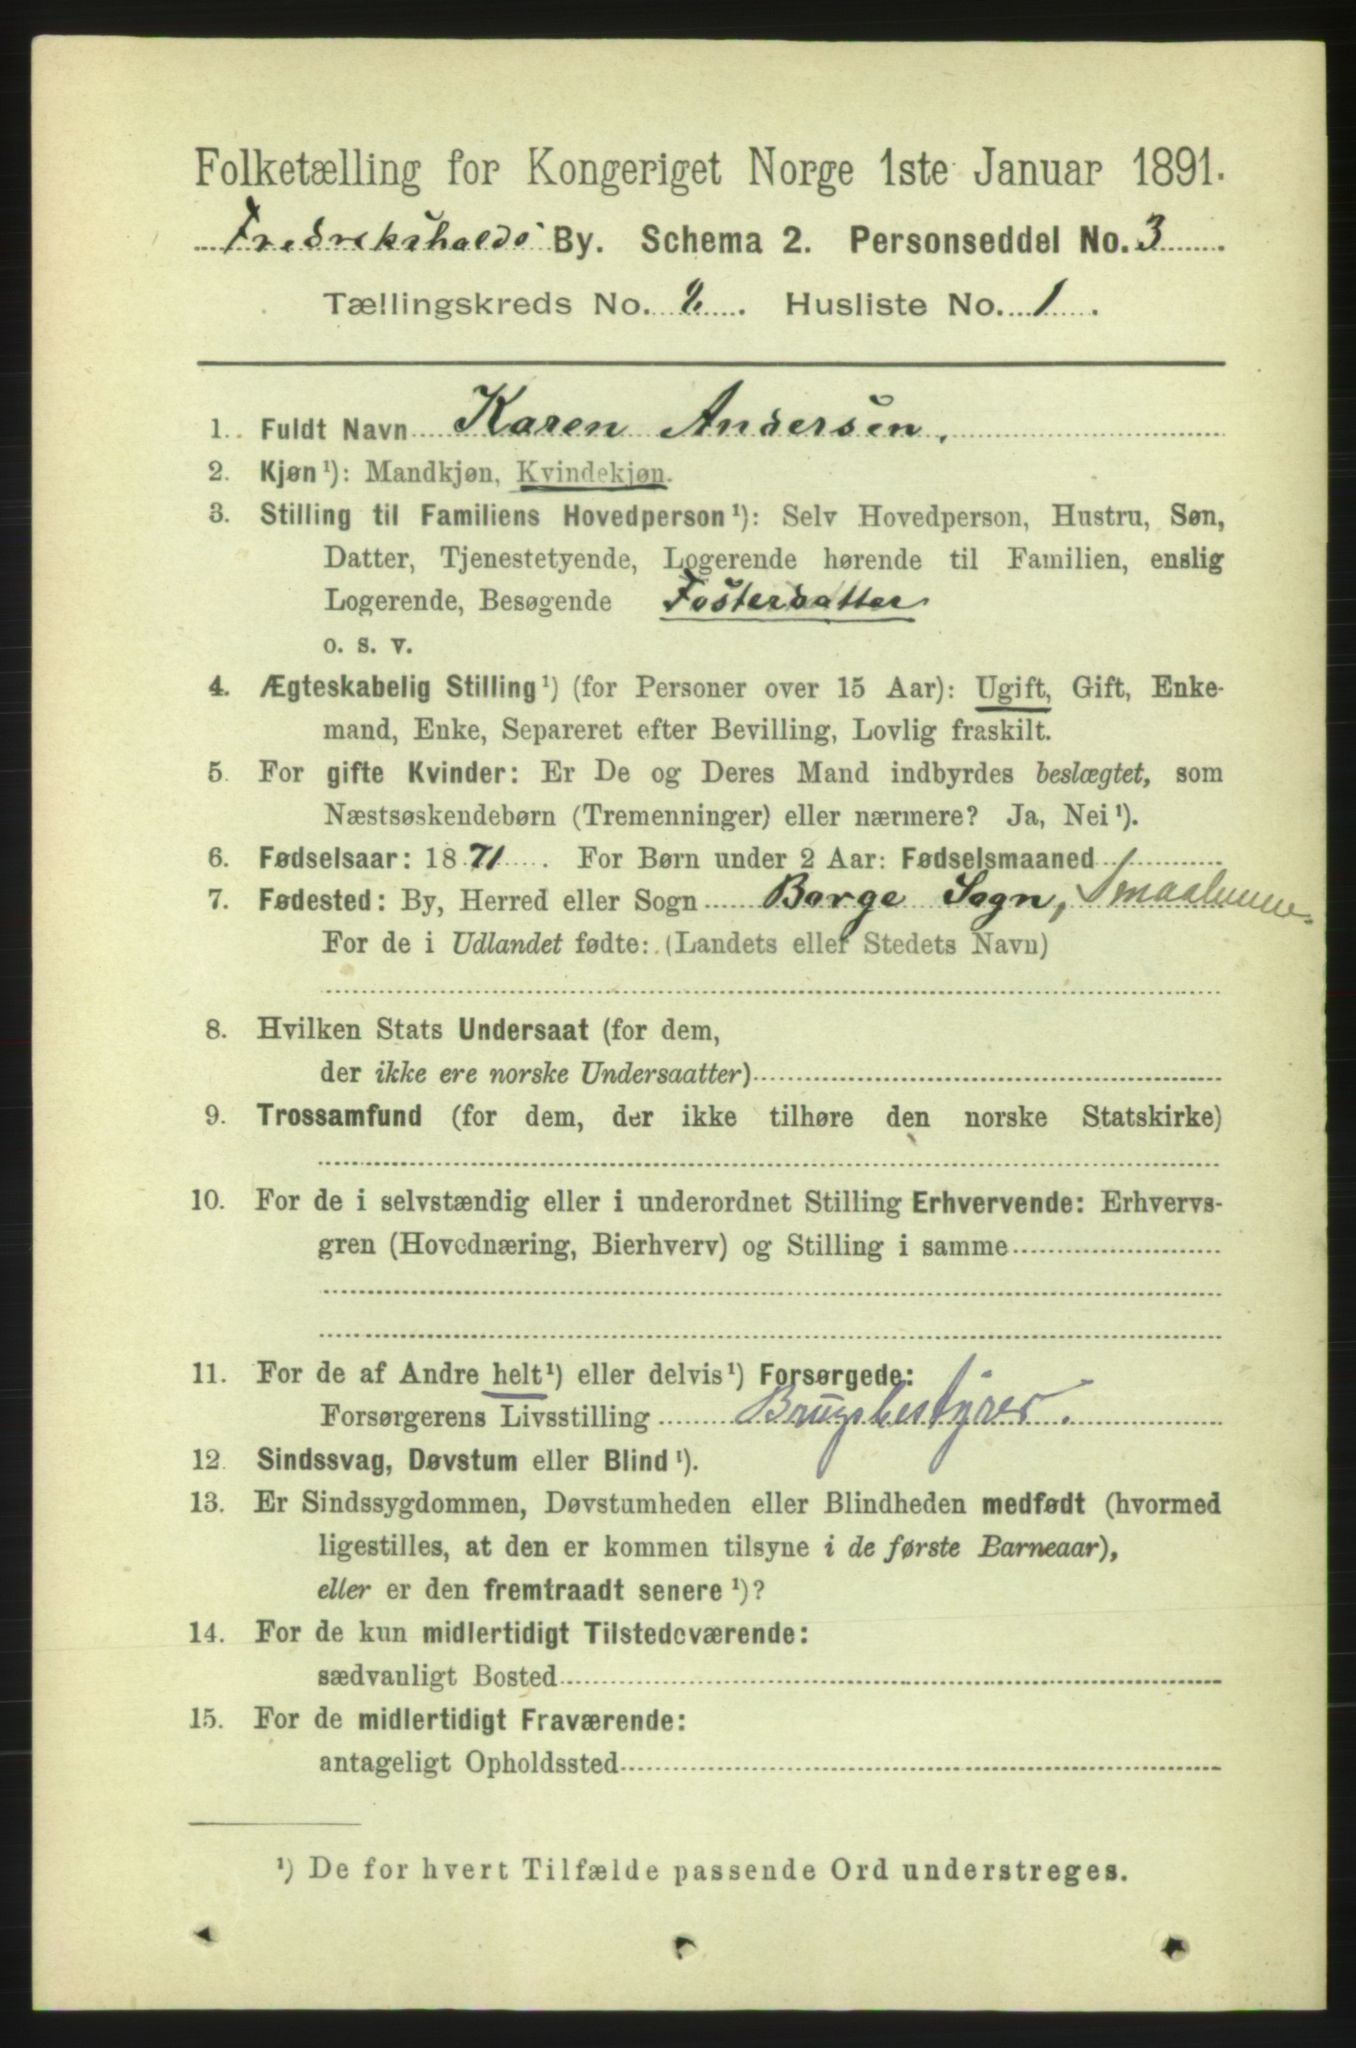 Folketælling for Kongeriget Norge 1ste Januar 1891.
Fredrikshalds By. Schema 2. Personseddel No. 3
Tællingskreds No. 2. Husliste No. 1.
1. Fuldt Navn Karen Andersen,
2. Kjøn¹): Mandkjøn, Kvindekjøn.
3. Stilling til Familiens Hovedperson¹): Selv Hovedperson, Hustru, Søn,
Datter, Tjenestetyende, Logerende hørende til Familien, enslig
Logerende, Besøgende Fosterdatter
o. s. v.
4. Ægteskabelig Stilling¹) (for Personer over 15 Aar): Ugift, Gift, Enke-
mand, Enke, Separeret efter Bevilling, Lovlig fraskilt.
5. For gifte Kvinder: Er De og Deres Mand indbyrdes beslægtet, som
Næstsøskendebørn (Tremenninger) eller nærmere? Ja, Nei¹).
6. Fødselsaar: 1871. For Børn under 2 Aar: Fødselsmaaned
7. Fødested: By, Herred eller Sogn Borge Sogn, Smaalenene.
For de i Udlandet fødte: (Landets eller Stedets Navn)
8. Hvilken Stats Undersaat (for dem,
der ikke ere norske Undersaatter)
9. Trossamfund (for dem, der ikke tilhøre den norske Statskirke)
10. For de i selvstændig eller i underordnet Stilling Erhvervende: Erhvervs-
gren (Hovednæring, Bierhverv) og Stilling i samme
11. For de af Andre helt¹) eller delvis¹) Forsørgede:
Forsørgerens Livsstilling Brugsbestyrer.
12. Sindssvag, Døvstum eller Blind¹).
13. Er Sindssygdommen, Døvstumheden eller Blindheden medfødt (hvormed
ligestilles, at den er kommen tilsyne i de første Barneaar),
eller er den fremtraadt senere¹)?
14. For de kun midlertidigt Tilstedeværende:
sædvanligt Bosted
15. For de midlertidigt Fraværende:
antageligt Opholdssted
¹) De for hvert Tilfælde passende Ord understreges.